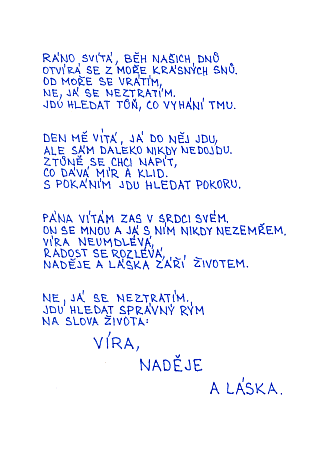 RÁNO SVÍTÁ, BĚH NAŠICH DNŮ
OTVÍRÁ SE Z MOŘE KRÁSNÝCH SNŮ.
OD MOŘE SE VRÁTÍM,
NE, JÁ SE NEZTRATÍM.
JDU HLEDAT TŮŇ, CO VYHÁNÍ TMU.
DEN MĚ VÍTÁ, JÁ DO NĚJ JDU,
ALE SÁM DALEKO NIKDY NEDOJDU.
Z TŮNĚ SE CHCI NAPÍT,
CO DÁVÁ MÍR A KLID.
S POKÁNÍM JDU HLEDAT POKORU.
PÁNA VÍTÁM ZAS V SRDCI SVÉM.
ON SE MNOU A JÁ S NÍM NIKDY NEZEMŘEM.
VÍRA NEUMDLÉVÁ,
RADOST SE ROZLÉVÁ,
NADĚJE A LÁSKA ZÁŘÍ ŽIVOTEM.
NE, JÁ SE NEZTRATÍM.
JDU HLEDAT SPRÁVNÝ RÝM
NA SLOVA ŽIVOTA:
VÍRA,
NADĚJE
A LÁSKA.